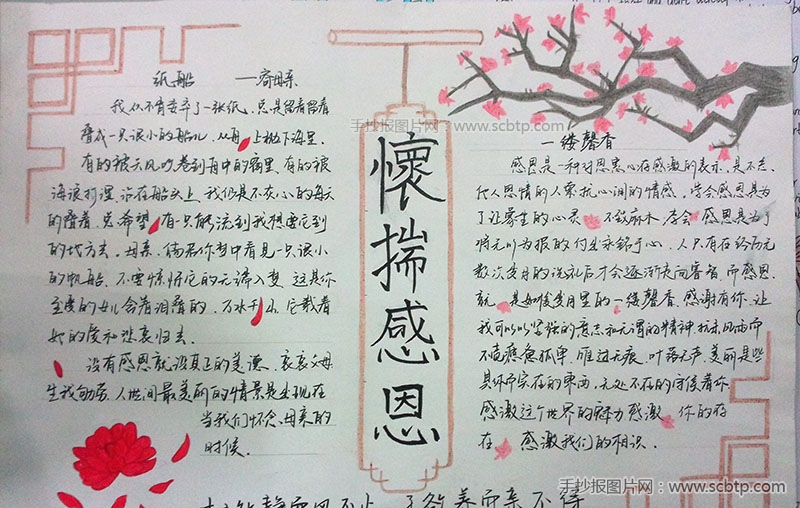 纸船 ——寄母亲
我从不肯妄弃了一张纸,总是留着留着
叠成一只很小的船儿,从舟上抛下海里。
有的被天风吹卷到舟中的窗里,有的被
海浪打湿,沾在船头上。我仍是不灰心的每天
的叠着,总希望有一只能流到我想要它到
的地方去。母亲,倘若你梦中看见一只很小
的帆船,不要惊讶它的无端入梦。这是你
至爱的女儿含着泪叠的,万水千山,它载着
她的爱和悲哀归去。
没有感恩就没有真正的美德。哀哀父母
生我劬劳。人世间最美丽的情景是出现在
当我们怀念母亲的
时候。
懷揣感恩
手抄报图片网:www.scbtp.com
一缕馨香
感恩是一种对恩惠心存感激的表示,是不忘
他人恩情的人萦绕心间的情感。学会感恩是为
了让蒙尘的心灵不致麻木,学会感恩是为了
将无以为报的付出永铭于心。人只有在经历无
数次岁月的洗礼后才会逐渐走向睿智,而感恩
就是如歌岁月里的一缕馨香。感谢有你,让
我可以以坚强的意志和无谓的精神抗击风雨而
不言疲惫孤单。雁过无痕,叶落无声,美丽是些
具体而实在的东西,无处不在的守候着你。
感激这个世界的魅力,感激你的存
在,感激我们的相识。
手抄报图片网:www.scbtp.com